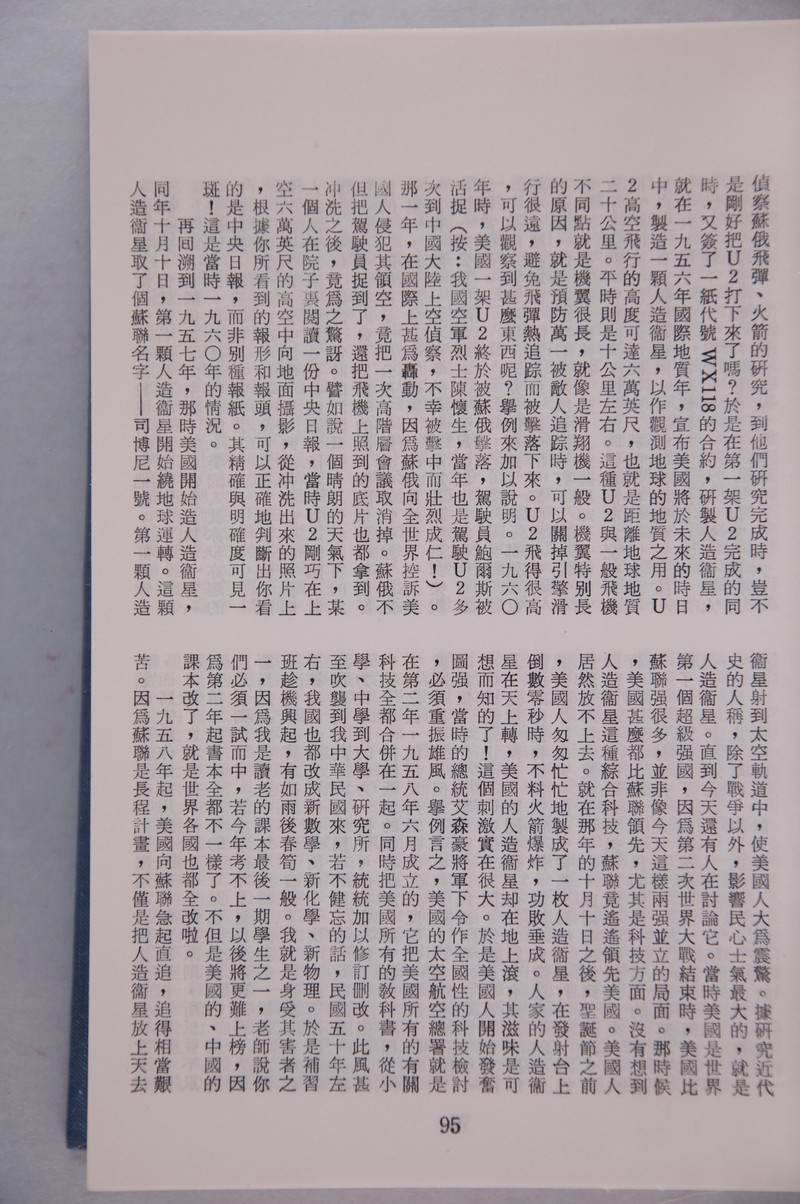 偵察蘇俄飛彈、火箭的研究，到他們研究完成時，豈不
是剛好把U2打下來了嗎？於是在第一架U2完成的同
時，又簽了一紙代號WX118的合約，研製人造衞星，
就在一九五六年國際地質年，宣布美國將於未來的時日
中，製造一顆人造衞星，以作觀測地球的地質之用。U
2高空飛行的高度可達六萬英尺，也就是距離地球地質
二十公里。平時則是十公里左右。這種U2與一般飛機
不同點就是機翼很長，就像是滑翔機一般。機翼特別長
的原因，就是預防萬一被敵人追踪時，可以關掉引擎滑
行很遠，避免飛彈熱追踪而被擊落下來。U2飛得很高
，可以觀察到甚麼東西呢？舉例來加以說明。一九六〇
年時，美國一架U2終於被蘇俄擊落，駕駛員鮑爾斯被
活捉（按：我國空軍烈士陳懷生，當年也是駕駛U2多
次到中國大陸上空偵察，不幸被擊中而壯烈成仁！）。
那一年，在國際上甚爲轟動，因爲蘇俄向全世界控訴美
國人侵犯其領空，竟把一次高階層會議取消掉。蘇俄不
但把駕駛員捉到了，還把飛機上照到的底片也都拿到。
冲洗之後，竟爲之驚訝。譬如說一個晴朗的天氣下，某
一個人在院子裏閱讀一份中央日報，當時U2剛巧在上
空六萬英尺的高空中向地面攝影，從冲洗出來的照片上
，根據你所看到的報形和報頭，可以正確地判斷出你看
的是中央日報，而非別種報紙。其精確與明確度可見一
斑！這是當時一九六〇年的情況。
再囘溯到一九五七年，那時美國開始造人造衞星，
同年十月十日，第一顆人造衞星開始繞地球運轉。這顆
人造衞星取了個蘇聯名字——司博尼一號。第一顆人造
衞星射到太空軌道中，使美國人大爲震驚。據研究近代
史的人稱，除了戰爭以外，影響民心士氣最大的，就是
人造衞星。直到今天還有人在討論它。當時美國是世界
第一個超級强國，因爲第二次世界大戰結束時，美國比
蘇聯强很多，並非像今天這樣兩强並立的局面。那時候
，美國甚麼都比蘇聯領先，尤其是科技方面。沒有想到
人造衞星這種綜合科技，蘇聯竟遙遙領先美國。美國人
居然放不上去。就在那年的十月十日之後，聖誕節之前
，美國人匆匆忙忙地製成了一枚人造衞星，在發射台上
倒數零秒時，不料火箭爆炸，功敗垂成。人家的人造衞
星在天上轉，美國的人造衞星却在地上滾，其滋味是可
想而知的了！這個刺激實在很大。於是美國人開始發奮
圖强，當時的總統艾森豪將軍下令作全國性的科技檢討
，必須重振雄風。舉例言之，美國的太空航空總署就是
在第二年一九五八年六月成立的，它把美國所有的有關
科技全都合併在一起。同時把美國所有的敎科書，從小
學、中學到大學、研究所，統統加以修訂删改。此風甚
至吹襲到我中華民國來，若不健忘的話，民國五十年左
右，我國也都改成新數學、新化學、新物理。於是補習
班趁機興起，有如雨後春筍一般。我就是身受其害者之
一，因爲我是讀老的課本最後一期學生之一，老師說你
們必須一試而中，若今年考不上，以後將更難上榜，因
爲第二年起書本全都不一樣了。不但是美國的、中國的
課本改了，就是世界各國也都全改啦。
一九五八年起，美國向蘇聯急起直追，追得相當艱
苦。因爲蘇聯是長程計畫，不僅是把人造衞星放上天去
95